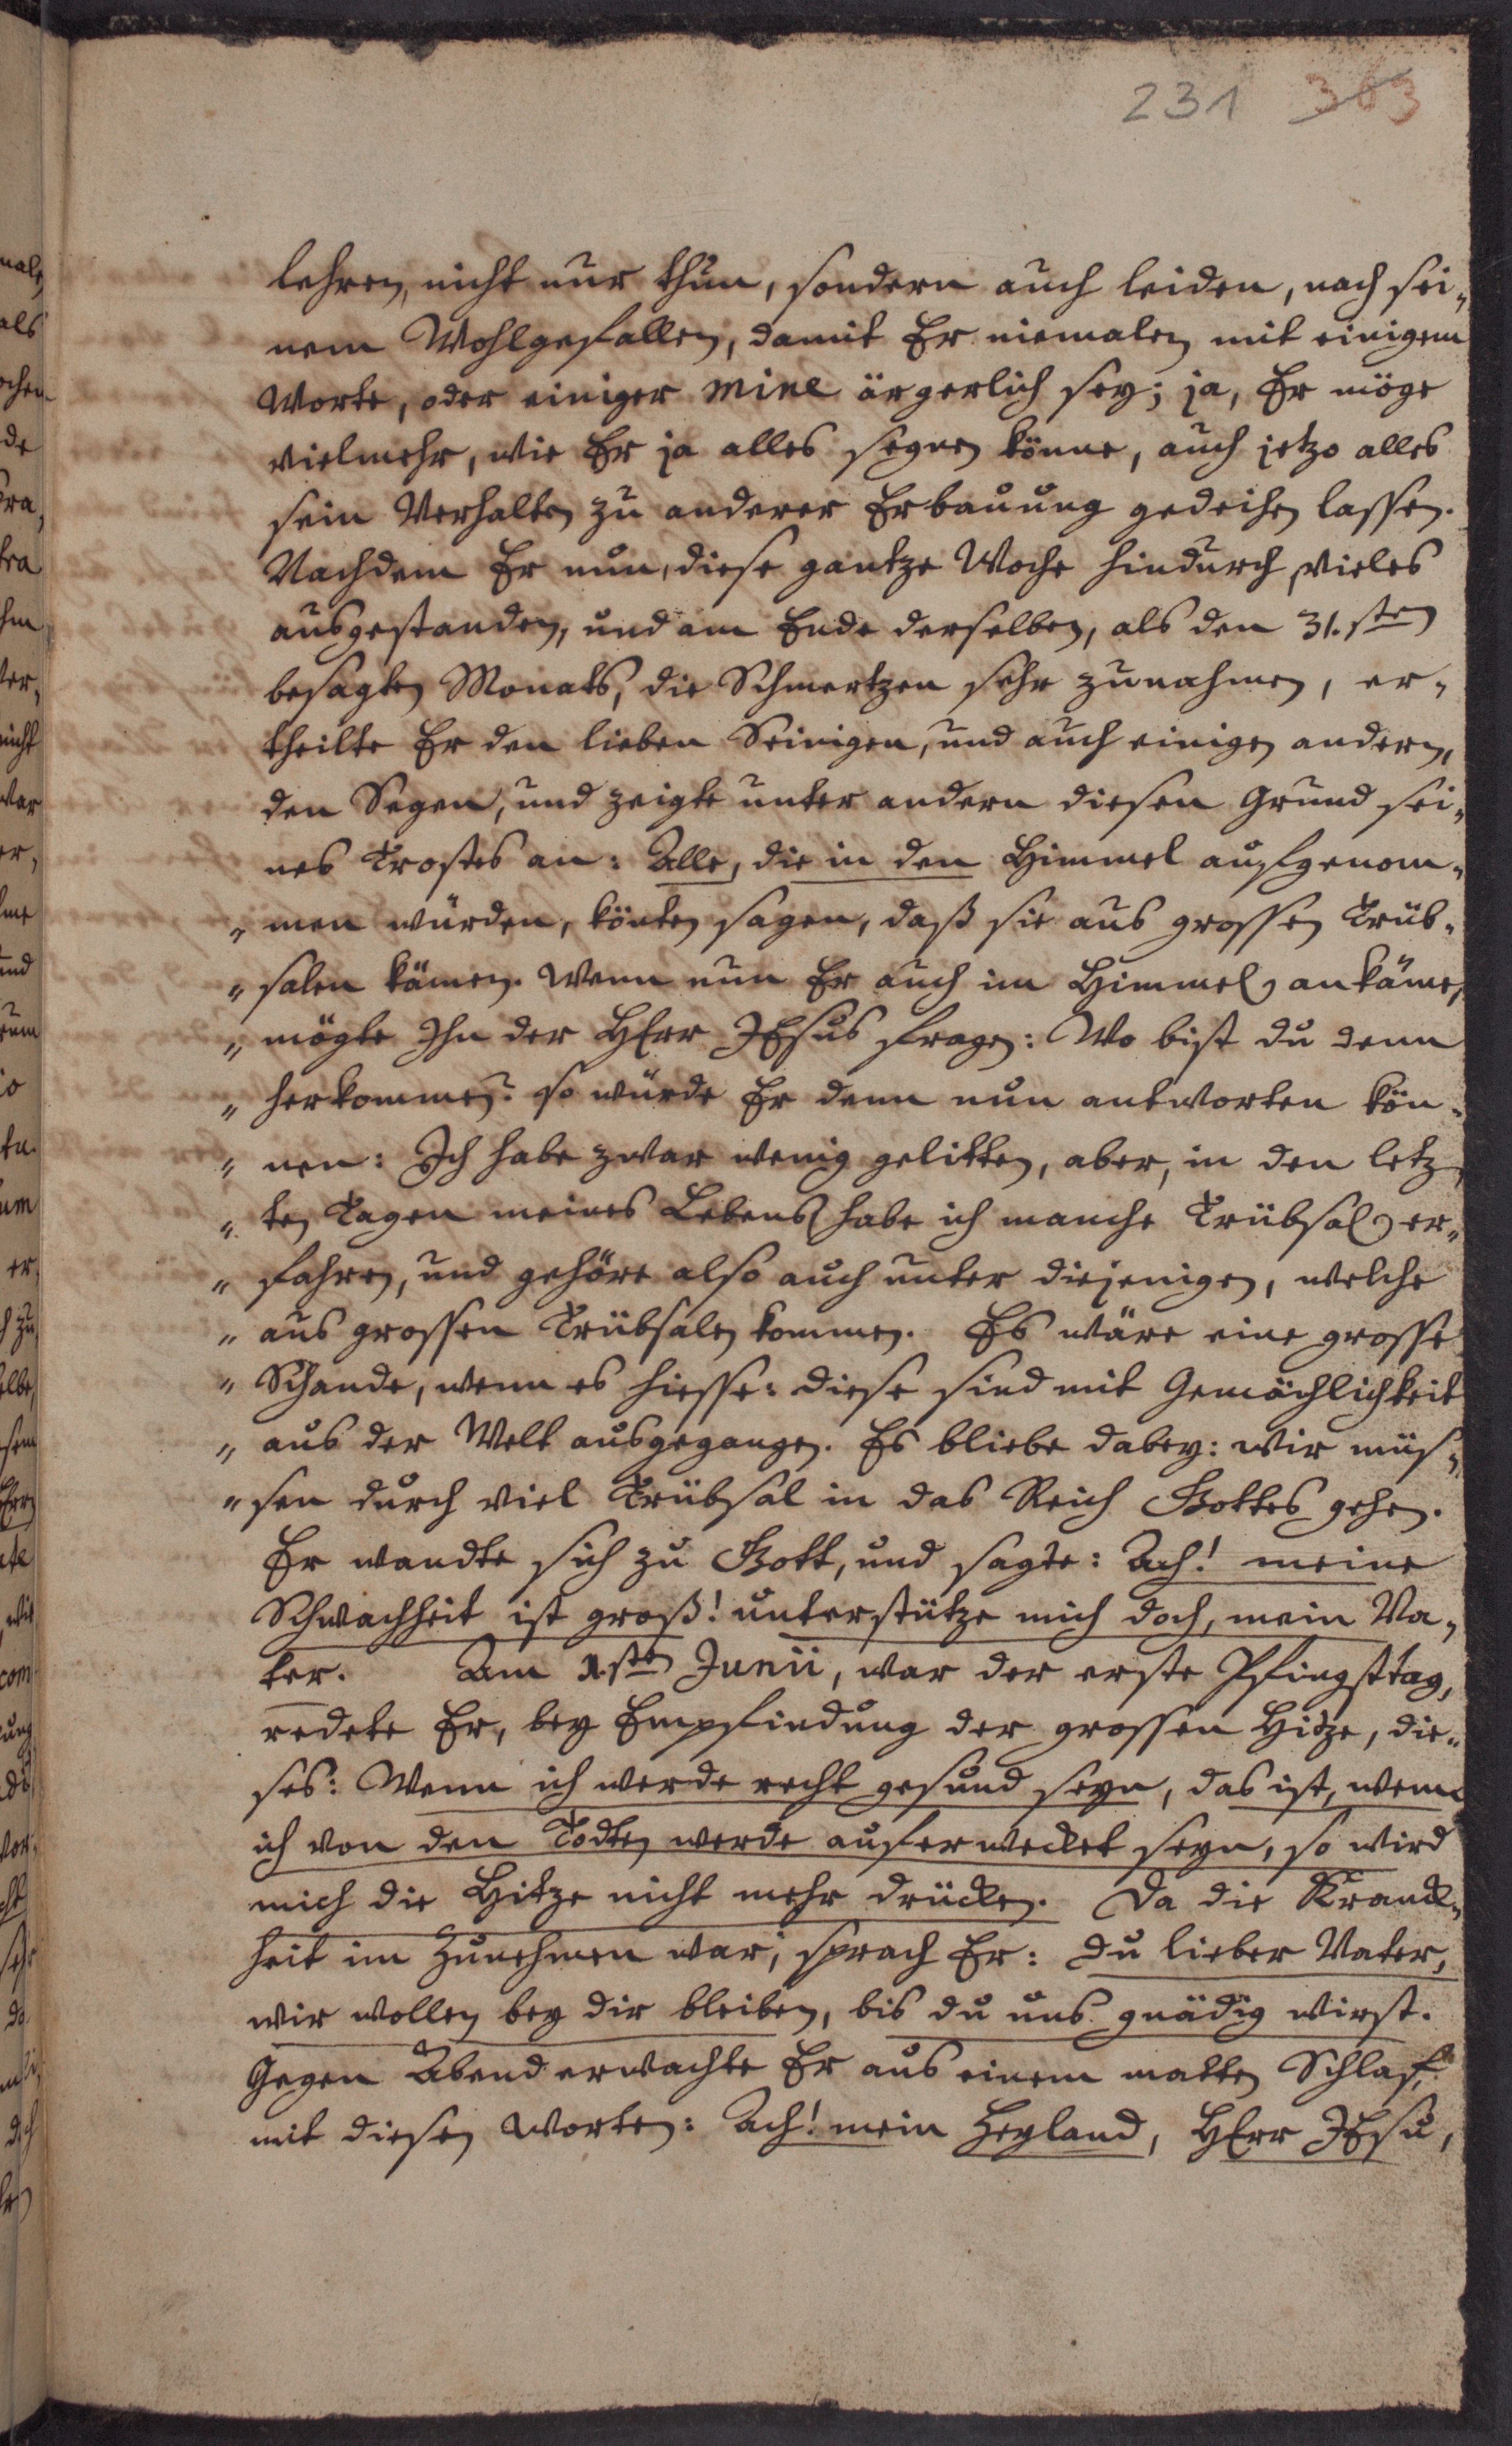 231 363
lehren, nicht nur thun, sondern auch leiden, nach sei-
nem Wohlgefallen, damit Er niemalen mit einigem
Worte, oder einiger Mine ärgerlich sey; ja, Er möge
vielmehr, wie Er ja alles segnen könne, auch jetzo alles
sein Verhalten zu anderer Erbauung gedeihen lassen.
Nachdem Er nun, diese gantze Woche hindurch, vieles
ausgestanden, und am Ende derselben, als den 31.sten
besagten Monats, die Schmertzen sehr zunahmen, er-
theilte Er den lieben Seinigen, und auch einigen andern,
den Segen, und zeigte unter andern diesen Grund sei-
nes Trostes an: Alle, die in den Himmel aufgenom-
" men würden, könten sagen, daß sie aus grossen Trüb-
" salen kämen. Wenn nun Er auch im Himmel ankäme,
" mögte Ihn der HErr JEsus fragen: Wo bist du denn
" herkommen? so würde Er denn nun antworten kön-
" nen: Ich habe zwar wenig gelitten, aber, in den letz-
" ten Tagen meines Lebens habe ich manche Trübsal er-
" fahren, und gehöre also auch unter diejenigen, welche
" aus grossen Trübsalen kommen. Es wäre eine grosse
" Schande, wenn es hiesse: diese sind mit Gemächlichkeit
" aus der Welt ausgegangen. Es bliebe dabey: wir müs-
" sen durch viel Trübsal in das Reich Gottes gehen.
Er wandte sich zu Gott, und sagte: Ach! meine
Schwachheit ist groß! unterstütze mich doch, mein Va-
ter. Am 1.sten Junii, war der erste Pfingsttag,
redete Er, bey Empfindung der grossen Hitze, die-
ses: Wenn ich werde recht gesund seyn, das ist, wenn
ich von den Todten werde auferwecket seyn, so wird
mich die Hitze nicht mehr drücken. Da die Kranck-
heit im Zunehmen war, sprach Er: Du lieber Vater,
wir wollen bey dir bleiben, bis du uns gnädig wirst.
Gegen Abend erwachte Er aus einem matten Schlaf,
mit diesen Worten: Ach! mein Heyland, HErr JEsu,